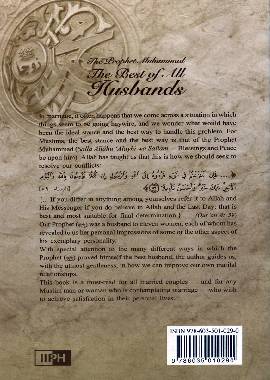 The Prophet Muhammad
The Best of All
Husbands
In marriage, it often happens that we come across a situation in which
things seem to be going haywire, and we wonder what would have
been the ideal stance and the best way to handle this problem. For
Muslims, the best stance and the best way is that of the Prophet
Muhammad (Salla Allahu 'Alayhi wa Sallam — Blessings and Peace
be upon him). Allah has taught us that this is how we should seek to
resolve our conflicts:
... If you differ in anything among yourselves refer it to Allah and
His Messenger if you do believe in Allah and the Last Day: that is
best and most suitable for final determination.)
Our Prophet (ﷺ) was a husband to eleven women, each of whom has
revealed to us her personal impressions of some or the other aspect of
his exemplary personality.
With special attention to the many different ways in which the
Prophet (ﷺ) proved himself the best husband, the author guides us,
with the utmost gentleness, in how we can improve our own marital
relationships.
This book is a must-read for all married couples — and for any
Muslim man or woman who is contemplating marriage — who wish
to achieve satisfaction in their personal lives.
IIPH
ISBN 978-603-501-029-0
9 786035 010290